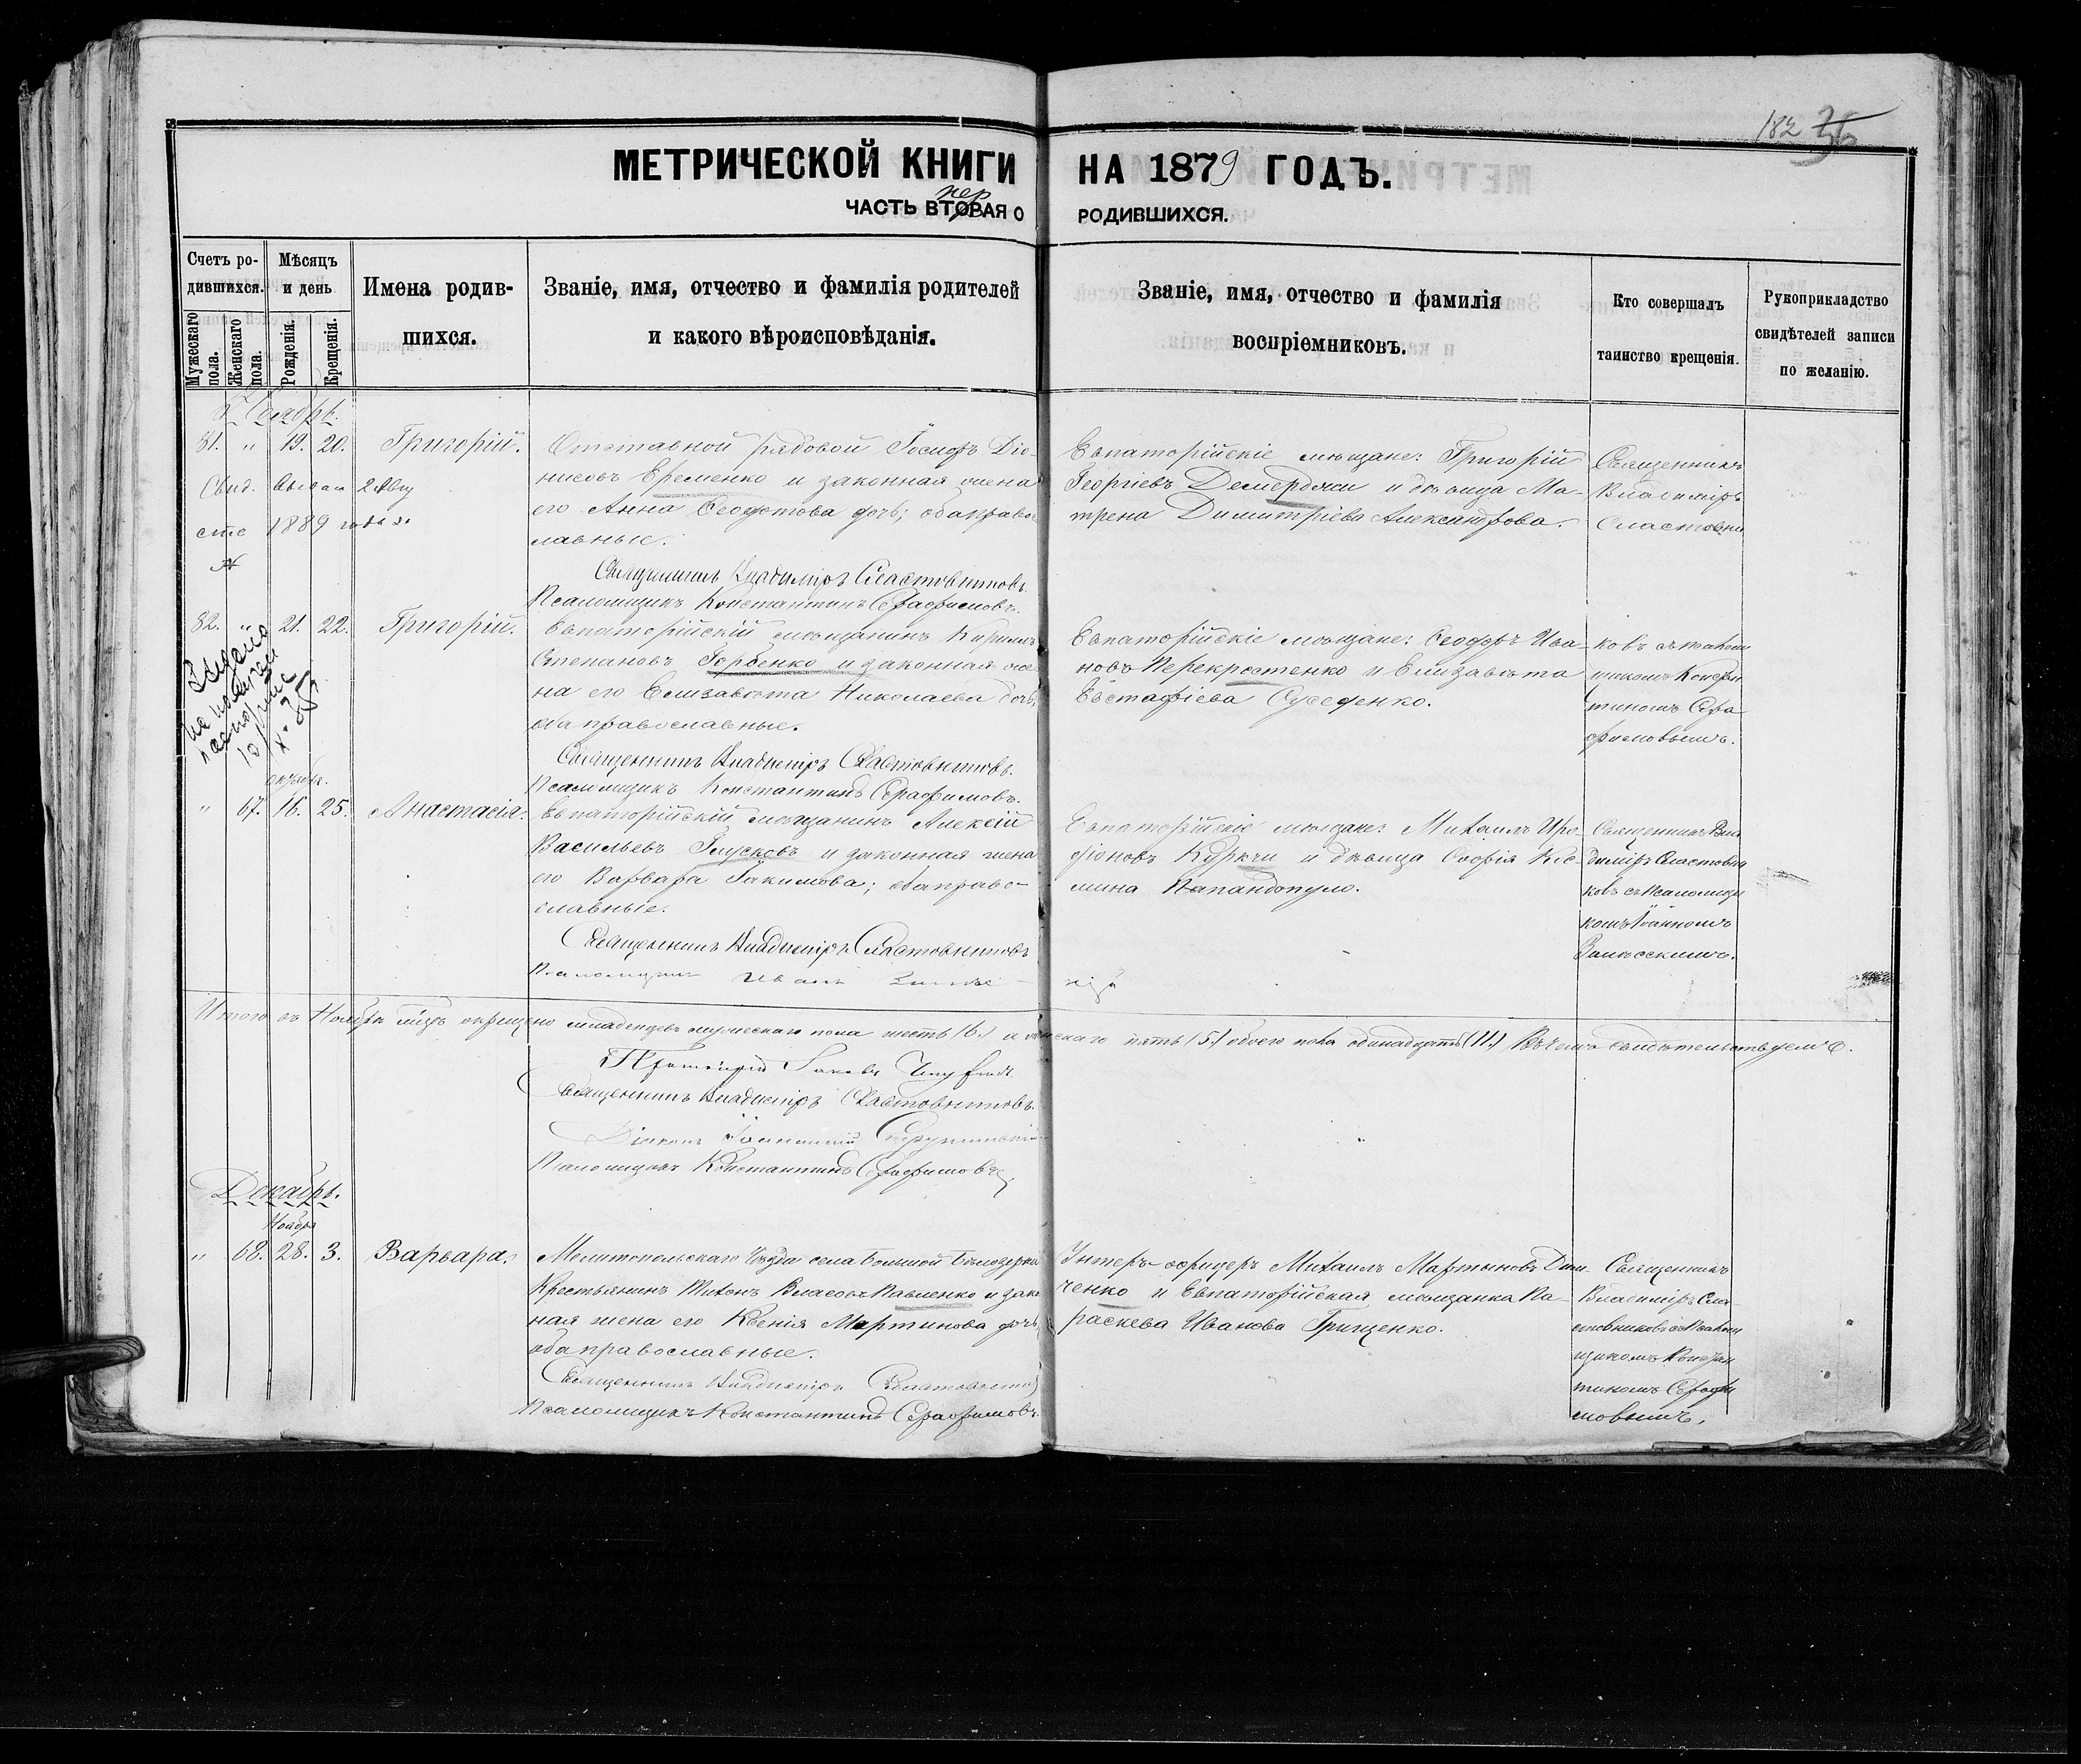 182 36
МЕТРИЧЕСКОЙ КНИГИ НА 1879 ГОДЪ.
пер
ЧАСТЬ ВТОРАЯ О РОДИВШИХСЯ.
Счетъ родившихся.
Мужескаго пола.
Женскаго пола.
Мѣсяцъ и день
Рожденія.
Крещенія.
Имена родившихся.
Званіе, имя, отчество и фамилія родителей
и какого вѣроисповѣданія.
Званіе, имя, отчество и фамилія
воспріемниковъ.
Кто совершалъ
таинство крещенія.
Рукоприкладство
свидѣтелей записи
по желанію.
81. " 19. 20. Григорій.
Отставной рядовой Іосифъ Діо-
нисовъ Еременко и законная жена
его Анна Феодотова дочь; оба право
славные.
Священникъ Владиміръ Сластовниковъ
Псаломщикъ Константинъ Серафимовъ.
Евпаторійскіе мѣщане: Григорій
Георгіевъ Демерджи и дѣвица Ма-
трена Димитріева Александрова.
Священникъ
Владиміръ
Сластовни
Свид. выдан 2 Авгу
сте 1889 года за
№
82. " 21. 22. Григорій.
Евпаторійскій мѣщанинъ Кириллъ
Степановъ Горбенко и законная же
на его Елизавета Николаева дочь,
оба православные.
Священникъ Владиміръ Сластовниковъ.
Псаломщикъ Константинъ Серафимовъ.
Евпаторійскіе мѣщане: Феодоръ Ива-
новъ Перекрестенко и Елизавета
Евстафіева
ковъ съ псалом
щикомъ Констан
тиномъ Сера
фимовымъ.
Выдано
октябр.
" 67. 16. 25. Анастасія.
Евпаторійскій мѣщанинъ Алексій
Васильевъ Глусковъ и законная жена
его Варвара Іакимова; оба право-
славные.
Священникъ Владиміръ Сластовниковъ
Псаломщикъ Иванъ
Евпаторійскіе мѣщане: Михаилъ Иро-
діоновъ Куркчи и дѣвица Софія Кос-
мина Папандопуло.
Священникъ Вла
диміръ Сластовни
ковъ съ псаломщи
комъ Іоанномъ
Итого въ Ноябрѣ мѣс. окрещено младенцевъ мужескаго пола шесть (6.) и женскаго пять (5.) обоего пола одинадцать (11.) Въ чемъ свидѣтельствуемъ.
Протоіерей Іаковъ
Священникъ Владиміръ Сластовниковъ.
Діаконъ
Псаломщикъ Константинъ Серафимовъ.
Декабрь.
Ноября
" 68. 28. 3. Варвара.
Мелитопольскаго уѣзда села Большой Бѣлозерки
Крестьянинъ Тихонъ Власовъ Павленко и закон
ная жена его Ксенія Мартинова дочь,
оба православные.
Священникъ Владиміръ Сластовниковъ
Псаломщикъ Константинъ Серафимовъ.
Унтеръ-офицеръ Михаилъ Мартыновъ Дим
ченко и Евпаторійская мѣщанка Па-
раскева Иванова Грищенко.
Священникъ
Владиміръ Сла-
стовниковъ съ псалом
щикомъ Констан
тиномъ Серафи
мовымъ.